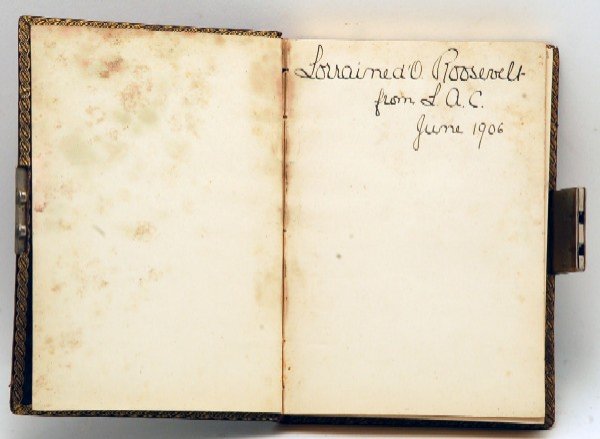 Lorraine d'O. Roosevelt
from L. A. C.
June 1906